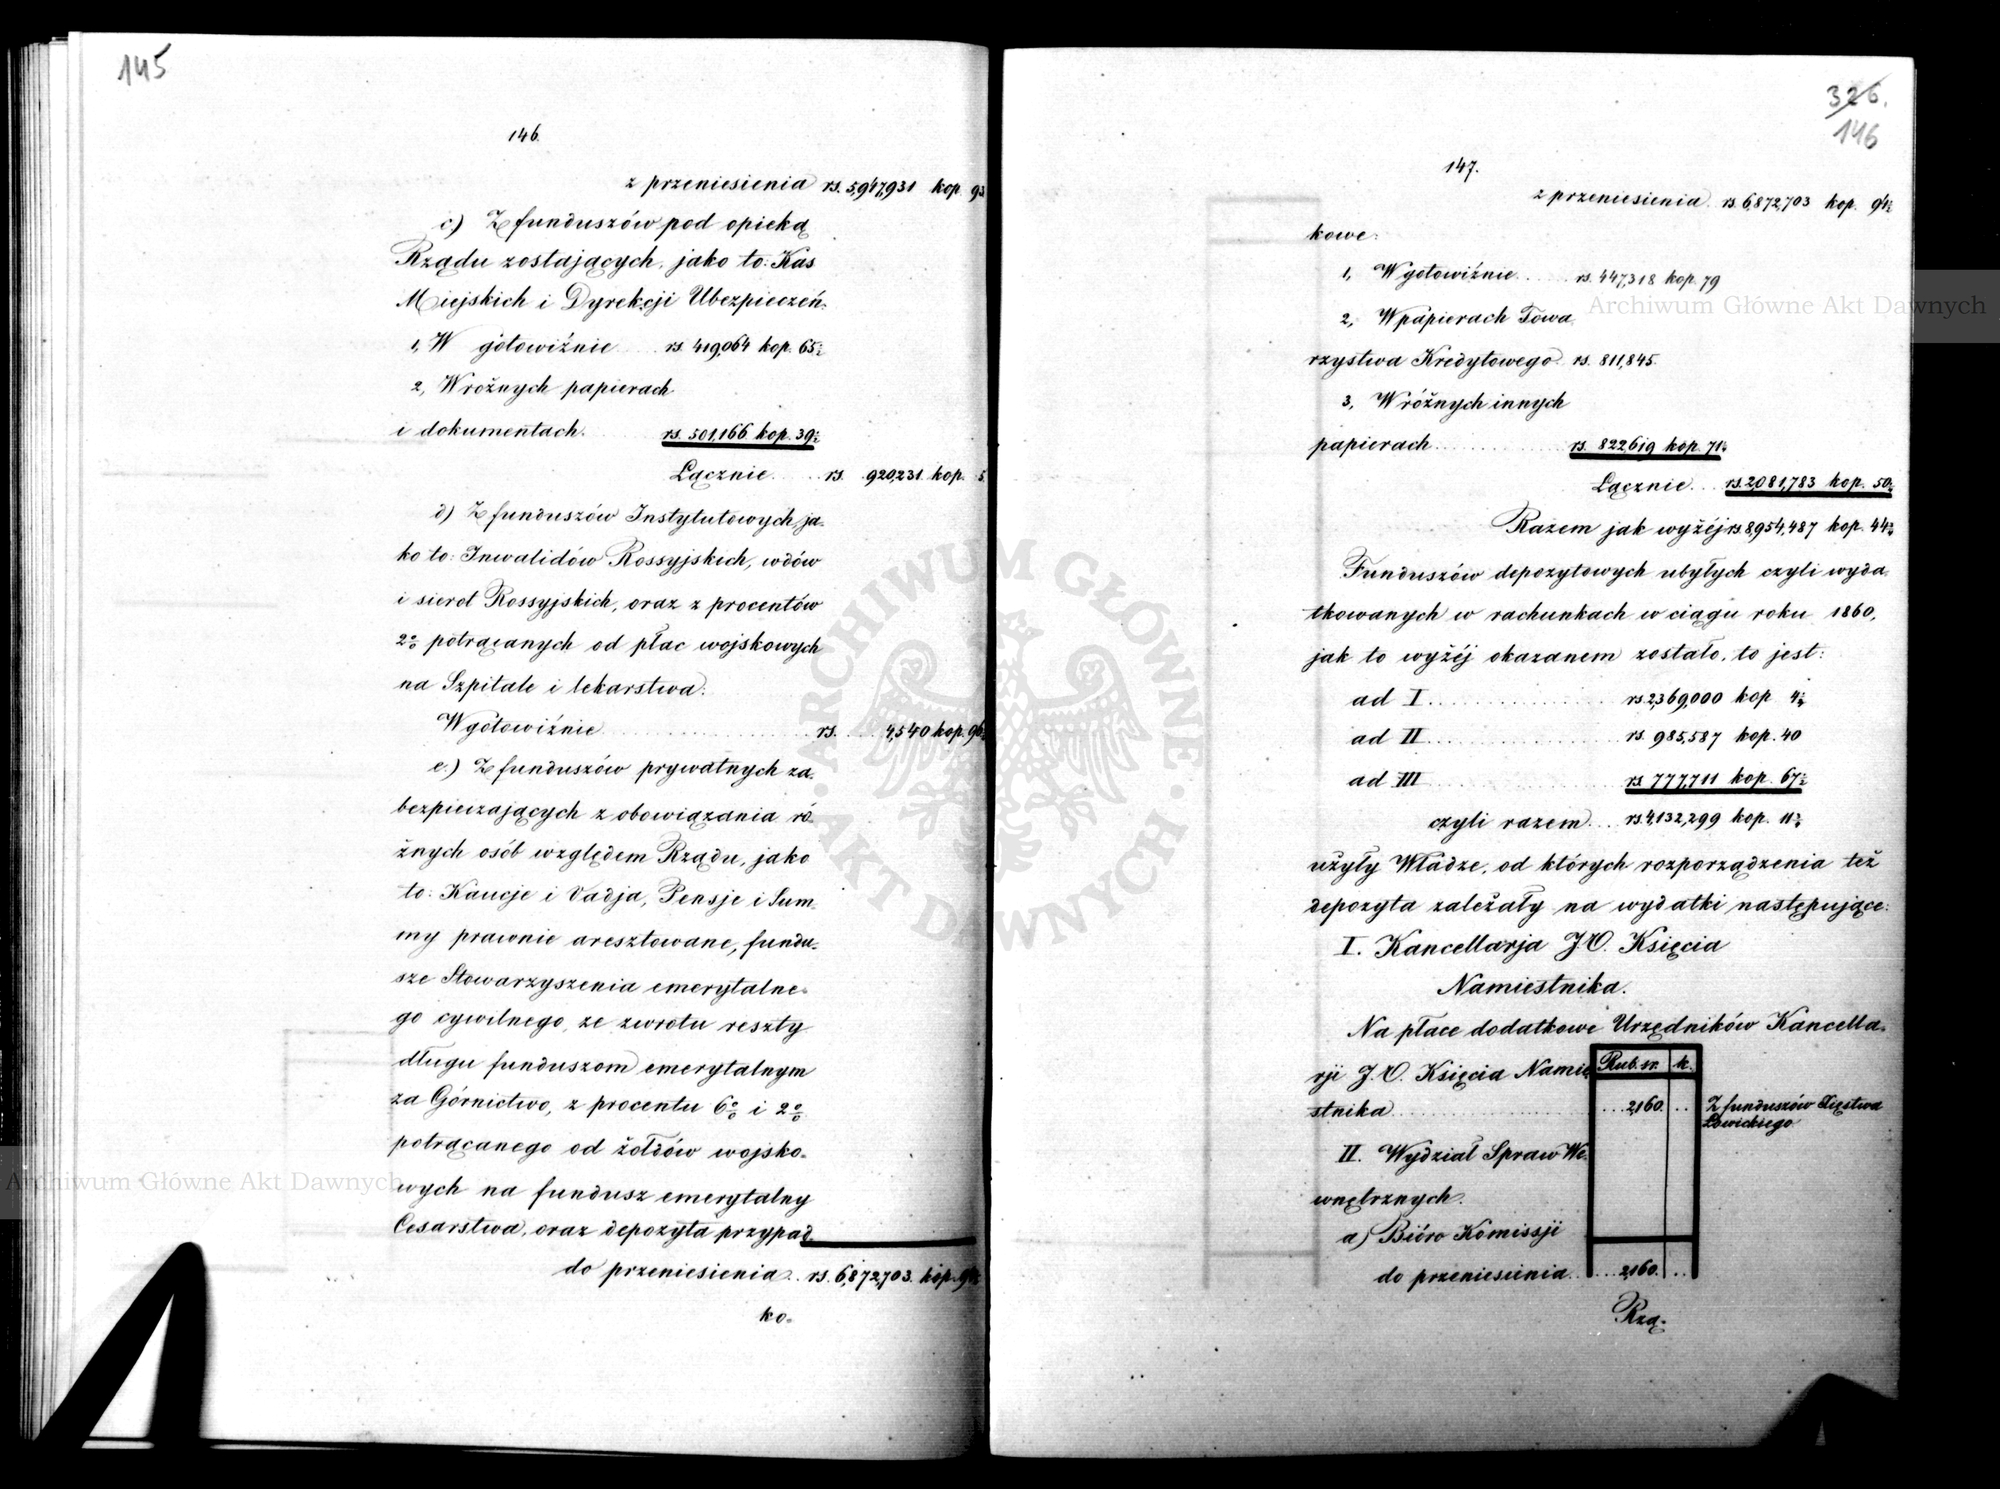 145
146.
z przeniesienia rs. 5,947,931 kop. 93
c) Z funduszów pod opieką
Rządu zostających, jako to: Kas
Miejskich i Dyrekcji Ubezpieczeń.
1, W gotowiźnie rs. 419,064 kop. 65½
2, W różnych papierach
i dokumentach. rs. 501,166 kop. 39½
Łącznie rs. 920,231 kop. 5.
d) Z funduszów Instytutowych ja-
ko to: Inwalidów Rossyjskich, wdów
i sierot Rossyjskich, oraz z procentów
2% potrącanych od płac wojskowych
na Szpitale i lekarstwa:
W gotowiźnie rs. 4,540 kop. 96
e.) Z funduszów prywatnych za-
bezpieczających zobowiązania ró-
żnych osób względem Rządu, jako
to: Kaucje i Vadja, Pensje i Sum-
my prawnie aresztowane, fundu-
sze Stowarzyszenia emerytalne-
go cywilnego, ze zwrotu reszty
długu funduszom emerytalnym
za Górnictwo, z procentu 6% i 2%
potrącanego od żołdów wojsko-
wych na fundusz emerytalny
Cesarstwa, oraz depozyta przypad-
do przeniesienia rs. 6,872,703. kop.
ko-
326.
146
147.
z przeniesienia rs. 6,872,703 kop. 94½
kowe:
1, W gotowiźnie rs. 447,318 kop. 79
2, W papierach Towa-
rzystwa Kredytowego rs. 811,845.
3, W różnych innych
papierach rs. 822,619 kop. 71½
Łącznie rs. 2,081,783 kop. 50½
Razem jak wyżéj rs. 8,954,487 kop. 44½
Funduszów depozytowych ubyłych czyli wyda-
tkowanych w rachunkach w ciągu roku 1860,
jak to wyżéj okazanem zostało, to jest:
ad I rs. 2,369,000 kop 4½
ad II rs. 985,587 kop. 40
ad III rs. 777,711 kop. 67½
czyli razem rs. 4,132,299 kop. 11½
użyły Władze, od których rozporządzenia też
depozyta zależały na wydatki następujące:
I. Kancellarja J.O. Księcia
Namiestnika.
Na płace dodatkowe Urzędników Kancella-
rji J.O. Księcia Namie- Rub. sr. k.
stnika 2,160. Z funduszów Xięstwa
Łowickiego
II. Wydział Spraw We-
wnętrznych.
a) Biúro Kommissji
do przeniesienia 2,160.
Rzą-
Archiwum Główne Akt Dawnych
Archiwum Główne Akt Dawnych
ARCHIWUM GŁÓWNE
AKT DAWNYCH